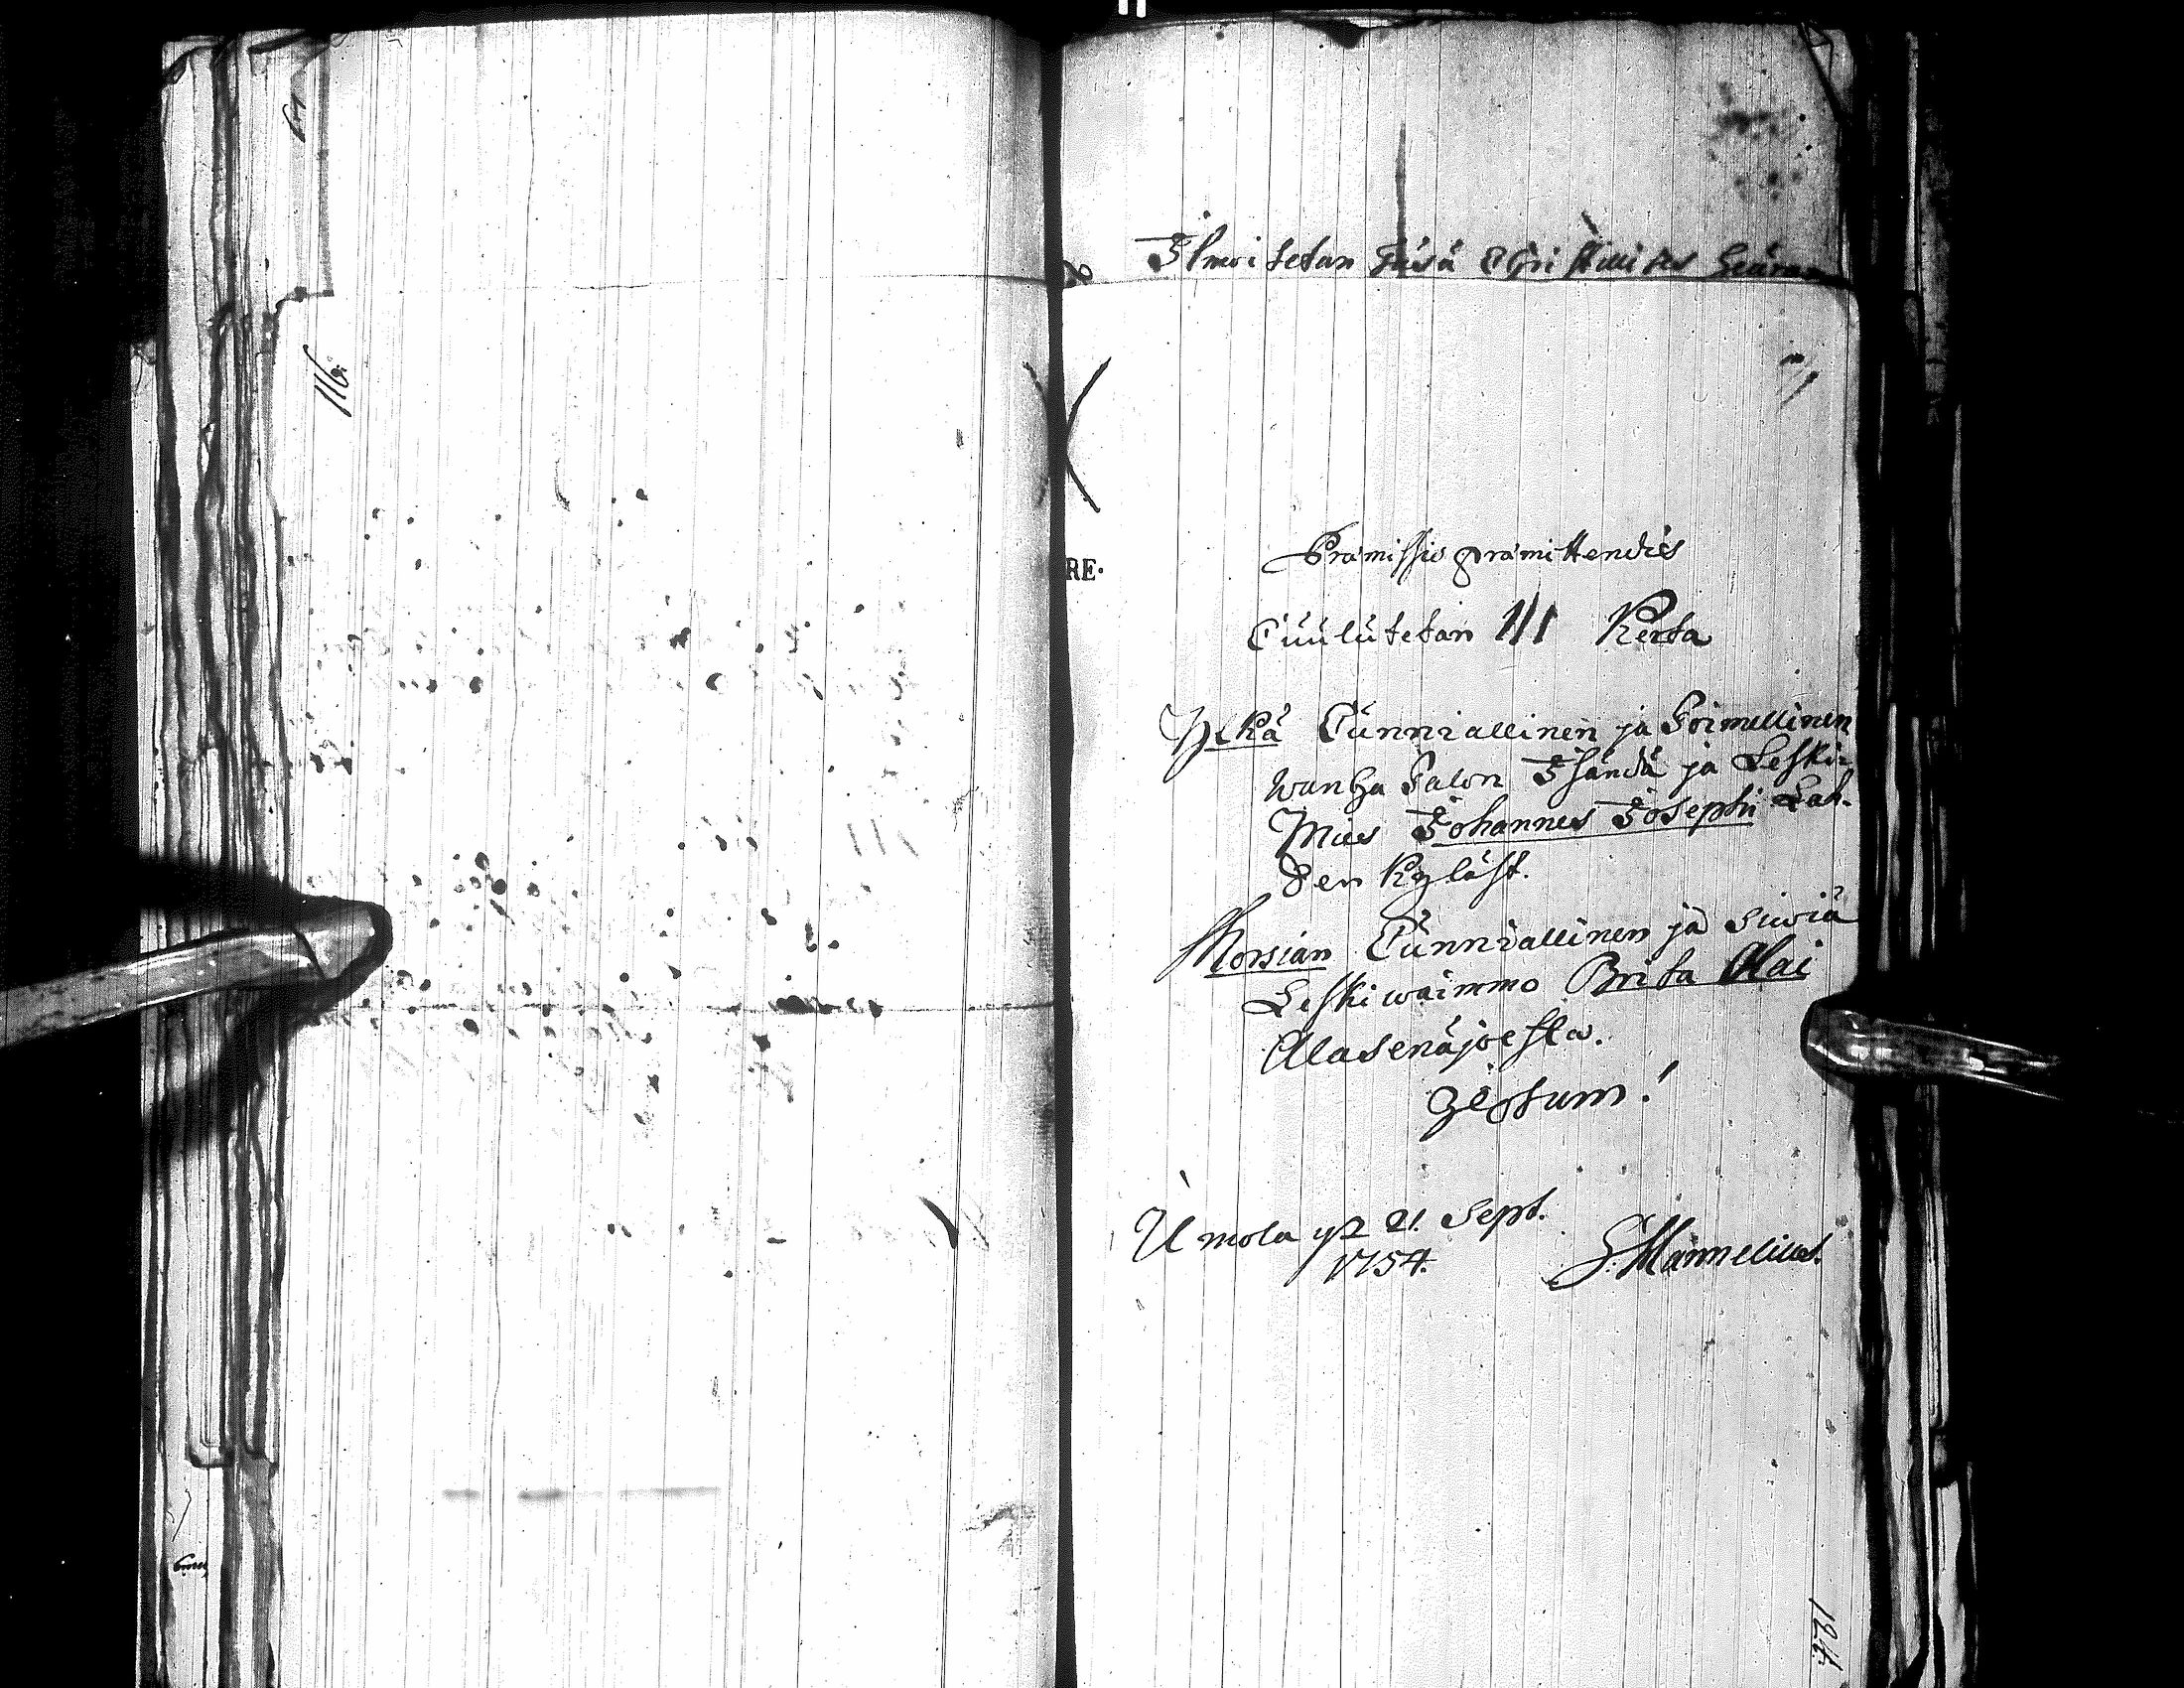 64
116.
Ilmoitetan täsä Christilises
RE.
Præmissis præmittendis
Cuulutetan III Kerta
Ylkä Cunniallinen ja Toimellinen
wanha Talon Isändä ja Leski-
Mies Johannes Josephi Lah-
den Kyläst.
Morsian Cunniallinen ja siwiä
Leskiwaimmo Brita Olai
Alasenäjoesta.
Gestum!
Umola 21. Sept.
1754.
G: Mannelius.
124.